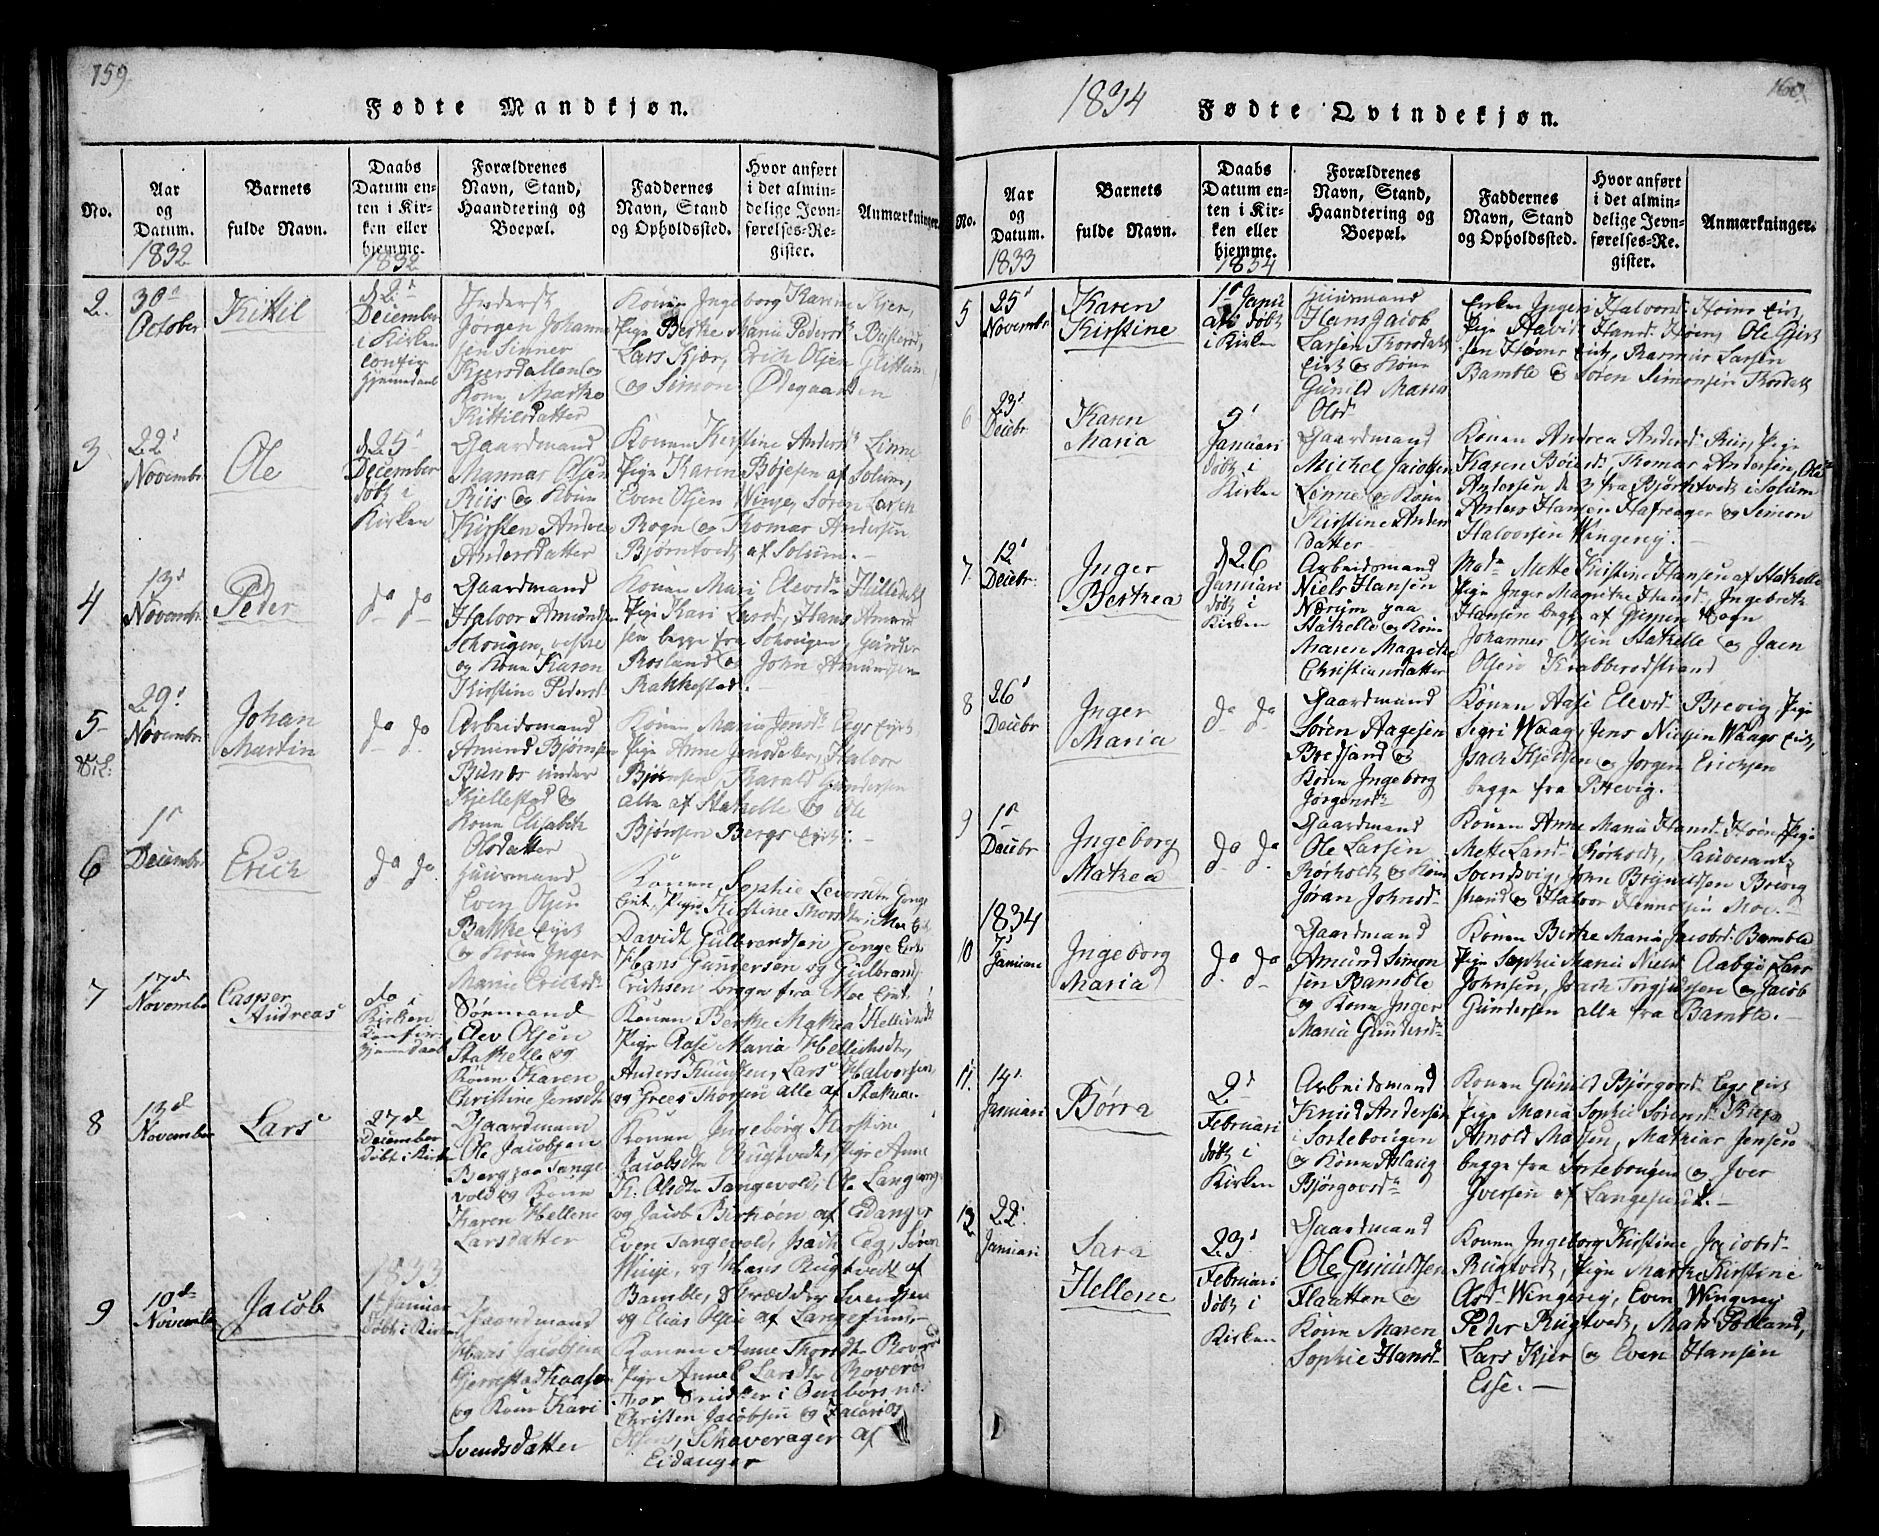 159.
Fødte Mandkjøn.
No.
Aar
og
Datum.
1832
Barnets
fulde Navn.
Daabs
Datum en-
ten i Kir-
ken eller
hjemme.
1832
Forældrenes
Navn, Stand,
Haandtering og
Boepæl.
Faddernes
Navn, Stand
og Opholdssted.
Hvor anført
i det almin-
delige Jevn-
førelses-Re-
gister.
Anmærkninger.
2.
30d
October
Kittil
d 2d
December
i Kirken
confir
Hjemdøbt
Jørgen Johanne
sen Sinner
Kjersdallen og
Kone Marthe
Kittilsdatter
Konen Ingeborg Karine Kjer,
Pige Berthe Maria Pedersdr Bustrød,
Lars Kjær, Erich Olsen Glittum,
og Simon Ødegaarden
3
22d
Novembr
Ole
d 25d
December
døbt i
Kirken
Gaardmand
Mannas Olsen
Riis og Kone
Kirsten Andrea
Andersdatter
Konen Kirstine Andersdr Linne
Pige Karen Bøjesen af Solum,
Even Olsen Winje, Søren Larsen
Rogn og Thomas Andersen
Bjørntvedt af Solum.-
4
13d
Novembr
Peder
do do
Gaardmand
Halvor Amundsen
Schougen vestre
og Kone Karen
Kirstine Pedersd
Konen Mari Elevsdr Hillestad
Pige Kari Larsd, Hans Amund
sen begge fra Schougen, Gunder
Rosland og John Amundsen
Rakkestad.-
5
29d
Novembr
Johan
Martin
do do
Arbeidsmand
Amund Bjørnsen
Bunds under
Kjellestad og
Kone Elisabeth
Olsdatter
Konen Maria Jensdr Eegs Eyet
Pige Anne Jensdatter, Halvor
Bjørnsen, Harald Gundersen
alle af Stathelle og Ole
Bjørnsen Bergs Eyet.-
6
1d
December
Erich
do do
Huusmand
Even Olsen
Bakke Eyet
og Kone Inger
Maria Erichsdr
Konen Sophie Levorsdtr Gonge
Eiet, Pige Kirstine Thorsdtr i Moe Eiet
Davidt Gulbrandsen Gonge Eiet
Hans Gundersen og Gulbrand
Erichsen begge fra Moe Eiet.
7
17d
November
Casper
Andreas
do i
Kirken
Confir
hjemdøbt
Sønmand
Elev Olsen
Stathelle og
Kone Karen
Christine Jensdt
Konen Berthe Mathea Hellisdt
Pige Aase Maria Hellichsdtr,
Anders Knudsen, Lars Halvorsen,
og Grees Thorsen alle af Stathea.
8
13d
November
Lars
27d
December
døbt i Kirken
Gaardmand
Ole Jacobsen
Berg paa Tange
vold og Kone
Karen Hellene
Larsdatter
Konen Ingeborg Kirstine
Jacobsdtr Rugtvedt, Pige Anne
K. Olsdtr Tangevold, Ole Langang
og Jacob Birkøen af Eidanger
Even Tangevold, Isach Eeg, Søren
Winje, og Hans Rugtvedt af
Bamble, Skrædder Svendsen
og Elias Olsen af Langesund
9
10d
November
Jacob
1833
1d Januar
døbt i Kirken
Gaardmand
Hans Jacobsen
Kjerrestad
og Kone Kari
Svendsdatter
Konen Anne Thorsdtr Rover
Pige Anne E Larsdtr Roverød
Thor Snidker i Ombørsnes
Christen Jacobsen og Zacarias
Olsen, Skaverager af
Eidanger
160
1834
Fødte Qvindekjøn.
No.
Aar
og
Datum.
1833
Barnets
fulde Navn.
Daabs
Datum en-
ten i Kir-
ken eller
hjemme.
1834
Forældrenes
Navn, Stand,
Haandtering og
Boepæl.
Faddernes
Navn, Stand
og Opholdssted.
Hvor anført
i det almin-
delige Jevn-
førelses-Re-
gister.
Anmærkninger.
5
25d
Novembr
Karen
Kirstine
1d Janu
ari døbt
i Kirken
Huusmand
Hans Jacob
Larsen Thordets
Eiet og Kone
Gunild Maria
Olsd
Enken Ingeri Halvorsd Høens Eiet,
Pige Aavid Hansd Høen, Ole Giert
sen Høens Eiet, Rasmus Larsen
Bamble og Søren Simonsen Thordets
6
23d
Decbr
Karen
Maria
5d
Januari
døbt i
Kirken
Gaardmand
Michel Jacobsen
Linne og Kone
Kirstine Anders
datter
Konen Andrea Andersd Riis, Pige
Karen Bøiesd, Thomas Andersen, Ole
Andersen de 3 fra Bjørntvedt i Solum
Anders Hansen Hafreager og Simon
Halvorsen Wingereg.-
7
12d
Decbr
Inger
Berthea
d 26
Januari
døbt i
Kirken
Arbeidsmand
Niels Hansen
Nærum paa
Stathelle og Kone
Maren Magrethe
Christiansdatter
Mad. Mette Kirstine Hansen af Stathelle
Pige Inger Magrethe Hansd, Ingebreth
Hansen begge af Gjemsøe Rogn
Johannes Olsen Stathelle og Jaen
Olsen Krabberødstrand
8
26d
Decbr
Inger
Maria
do do
Gaardmand
Søren Aagesen
Bredsand og
Kone Ingeborg
Jørgensdr
Konen Aase Elevsd Brevig Pige
Sigri Waag, Jens Nielsen Waags Eiet,
Isach Kjeldsen og Jørgen Erichsen
begge fra Pittevig.
9
1d
Decbr
Ingeborg
Mathea
do do
Gaardmand
Ole Larsen
Rørholdt og Kone
Jøran Johnsd
Konen Anne Maria Hansd Høen, Pige
Mette Larsd Rørholdt, Sauverant
Svendsvig, John Brynildsen Brevig
strand og Halvor Hennesen Moe.-
1834
10
7d
Januari
Ingeborg
Maria
do do
Gaardmand
Amund Simon
sen Bamble
og Kone Inger
Maria Gundersdr
Konen Berthe Maria Jacobsd Bamble
Pige Sophie Maria Nielsd Aabye Lars
Johnsen, Isach Torgjussen og Jacob
Gundersen alle fra Bamble.-
11.
14d
Januari
Børra
2d
Februari
døbt i
Kirken
Arbeidsmand
Knud Andersen
i Sortebougen
og Kone Aslaug
Bjørgovsdr
Konen Gunild Bjørgovsd Eegs Eiet
Pige Maria Sophie Sørensdr Riis
Arnold Madsen, Mathias Jensen
begge fra Sortebougen og Iver
Iversen af Langesund.-
12
22d
Januari
Sara
Hellene
23d
Februari
døbt i
Kirken
Gaardmand
Ole Gundersen
Flaatten og
Kone Maren
Sophie Hansd
Konen Ingeborg Kirstine Jacobsd
Rugtvedt, Pige Marthe Kirstine
Olsd Wingereg, Even Wingereg
Peder Rugtvedt, Mads Polland,
Lars Kjer og Even Hansen
Esse.-